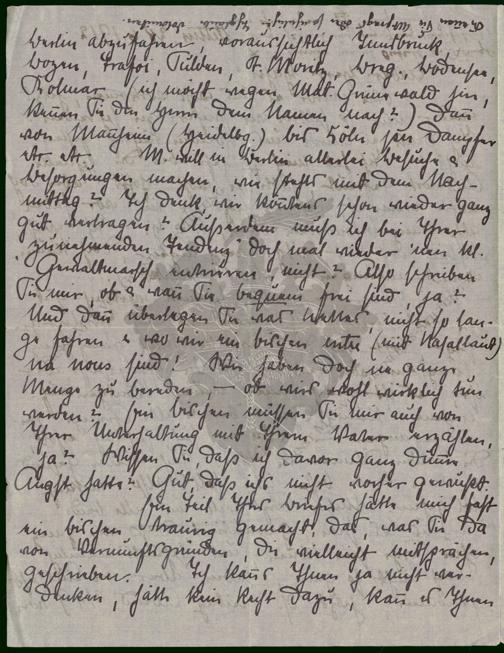 Berlin abzufahren, voraussichtlich Innsbruck
Bozen, Trafoi, Sulden, St. Moritz, Breg., Bodensee,
Kolmar (ich möcht wegen Mat. Grünewald hin,
kennen Sie den Herrn dem Namen nach?) Dann
von Manheim (Heidelbg.) bis Köln per Dampfer
etc. etc. M. will in Berlin allerlei Besuche &
Besorgungen machen, wie stehts mit dem Nach-
mittag? Ich denk wir könntens schon wieder ganz
gut vertragen? Außerdem muß ich bei Ihrer
"zunehmenden Tendenz" doch mal wieder 'nen kl.
Gewaltmarsch entrieren, nicht? Also schreiben
Sie mir, ob & wann Sie bequem frei sind, ja?
Und dann überlegen Sie was Nettes, nicht so lan-
ge fahren & wo wir ein bischen entre (mit Nasallaut)
na nous sind! Wir haben doch ne ganze
Menge zu bereden, — ob wirs wohl wirklich tun
werden? Ein bischen müssen Sie mir auch von
Ihrer Unterhaltung mit Ihrem Vater erzählen,
ja? Wissen Sie daß ich davor ganz dumme
Angst hatte? Gut, daß ichs nicht vorher gewußt.
Ein Teil Ihres Briefes hätte mich fast
ein bischen traurig gemacht, das, was Sie da
von Vernunftsgründen, die vielleicht mitsprächen,
geschrieben. Ich kanns Ihnen ja nicht ver-
denken, hätte kein Recht dazu, kann es Ihnen